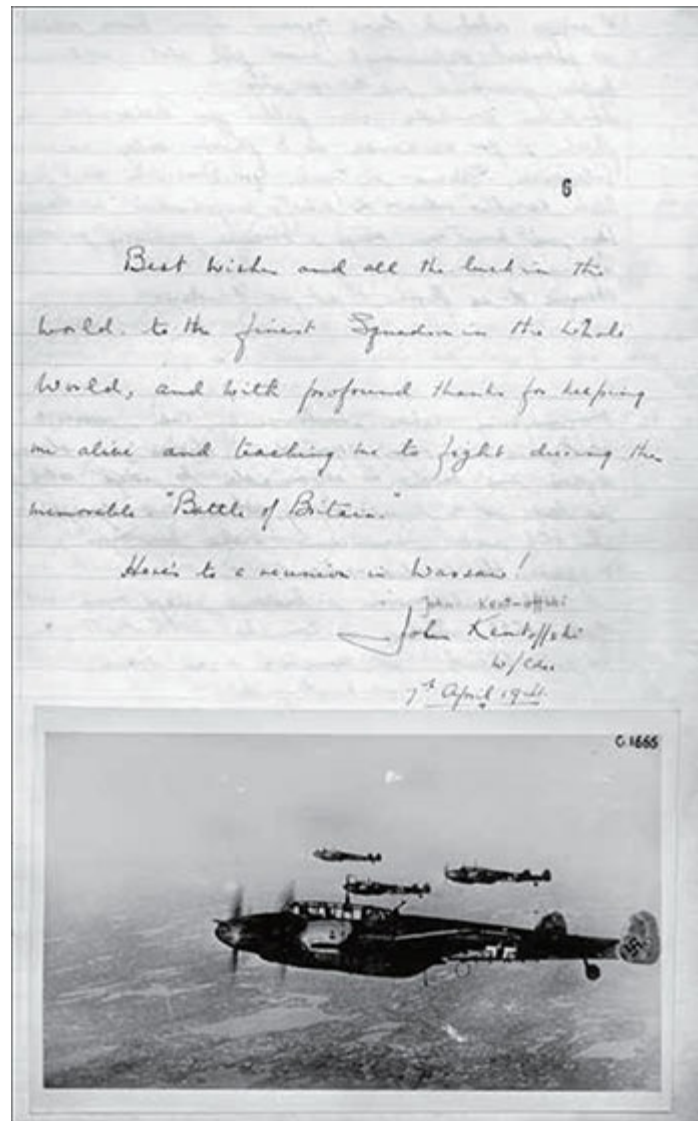 6
Best Wishes and all the luck in the
World. to the finest Squadron in the whole
World, and with profound thanks for keeping
me alive and teaching me to fight during the
memorable "Battle of Britain."
Here's to a reunion in Warsaw!
John Kent-offski
John Kentoffski
W/Cdr
7th April 1941.
C.1665